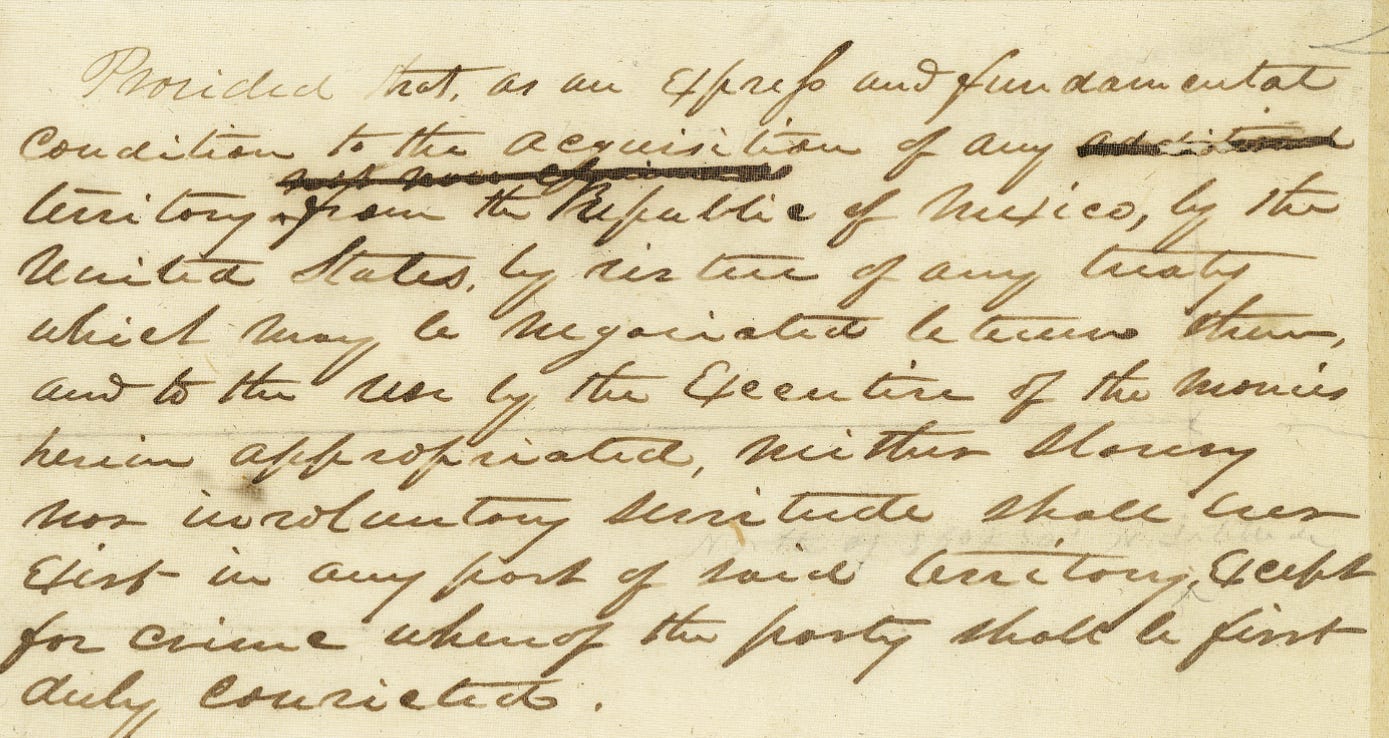 Provided that, as an express and fundamental
condition to the acquisition of any additional
territory from the Republic of Mexico, by the
United States, by virtue of any treaty
which may be negociated between them,
and to the use by the Executive of the monies
herein appropriated, neither slavery
nor involuntary servitude shall ever
North of 36° 30' N. Latitude
exist in any part of said territory, except
for crime whereof the party shall be first
duly convicted.